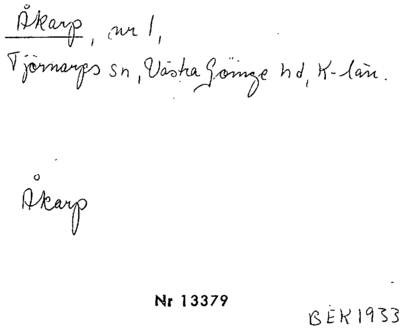 Åkarp, nr 1,
Tjörnarps sn, Västra Göinge hd, K-län.
Åkarp
Nr 13379
BEK 1933